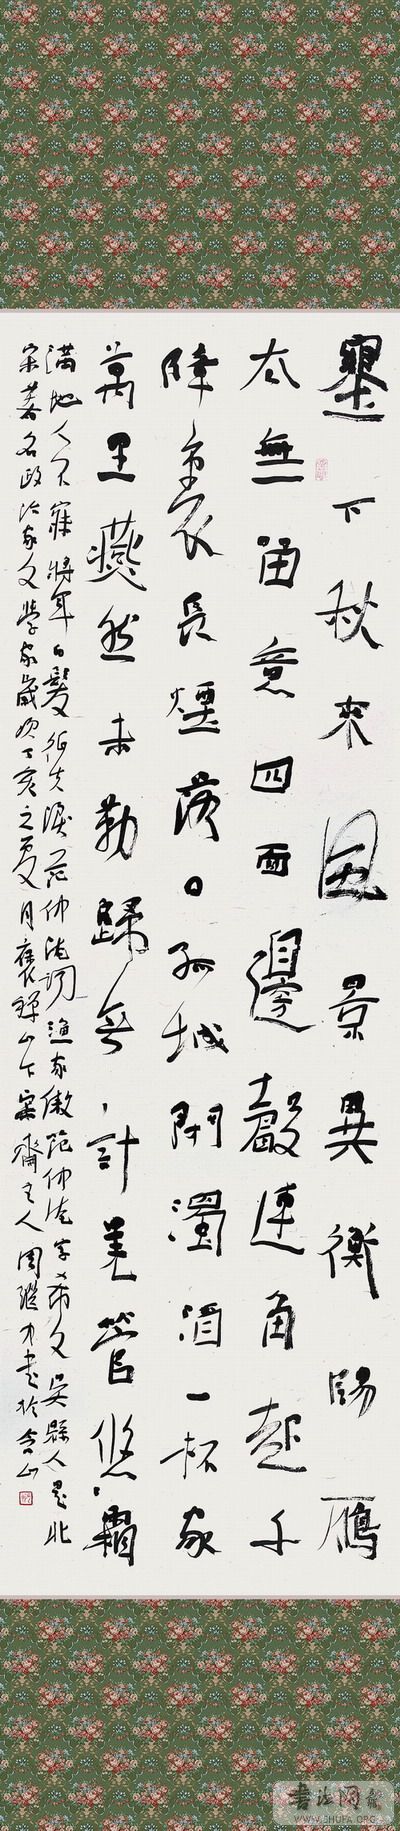 塞下秋来風景異衡陽鴈
去無留意四面邊聲連角起千
嶂裏長煙落日孤城閉濁酒一杯家
萬里燕然未勒歸無計羌管悠、霜
滿地人不寐將軍白髮征夫淚范仲淹詞漁家傲范仲淹字希文吴縣人是北
宋著名政治家文學家歲次丁亥之夏月褒禪山下齋主人周繼才書於含山
书法网
WWW.SHUFA.ORG